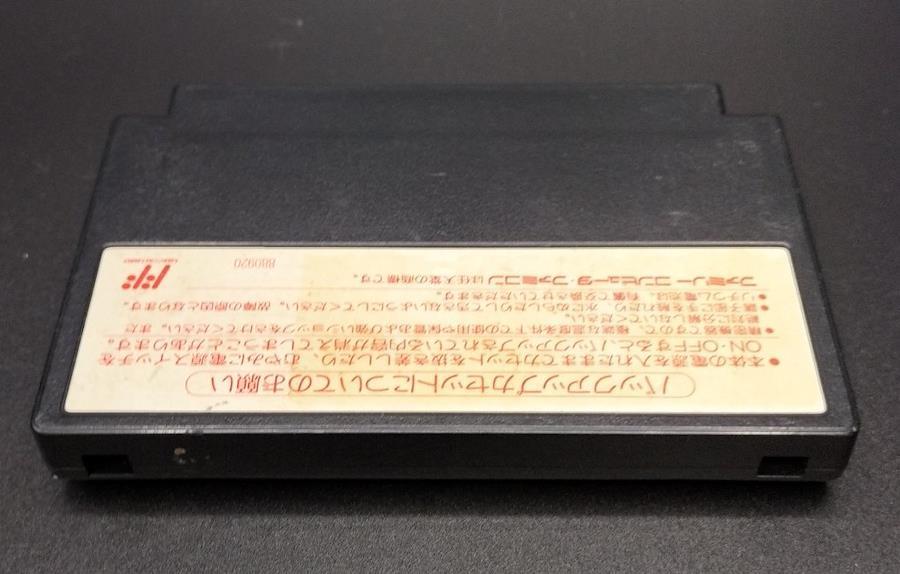 バックアップカセットについてのお願い
●本体の電源を入れたままでカセットを抜き差ししたり、むやみに電源スイッチを
ON・OFFするとバックアップされている内容が消えてしまうことがあります。
●精密機器ですので、極端な温度条件下での使用や保管および強いショックをさけてください。また
絶対に分解しないでください。
●端子部に手を触れたり、水にぬらしたりして汚さないようにしてください。故障の原因となります。
●リチウム電池は、有償で交換させていただきます。
ファミリーコンピュータ・ファミコンは任天堂の商標です。
880920